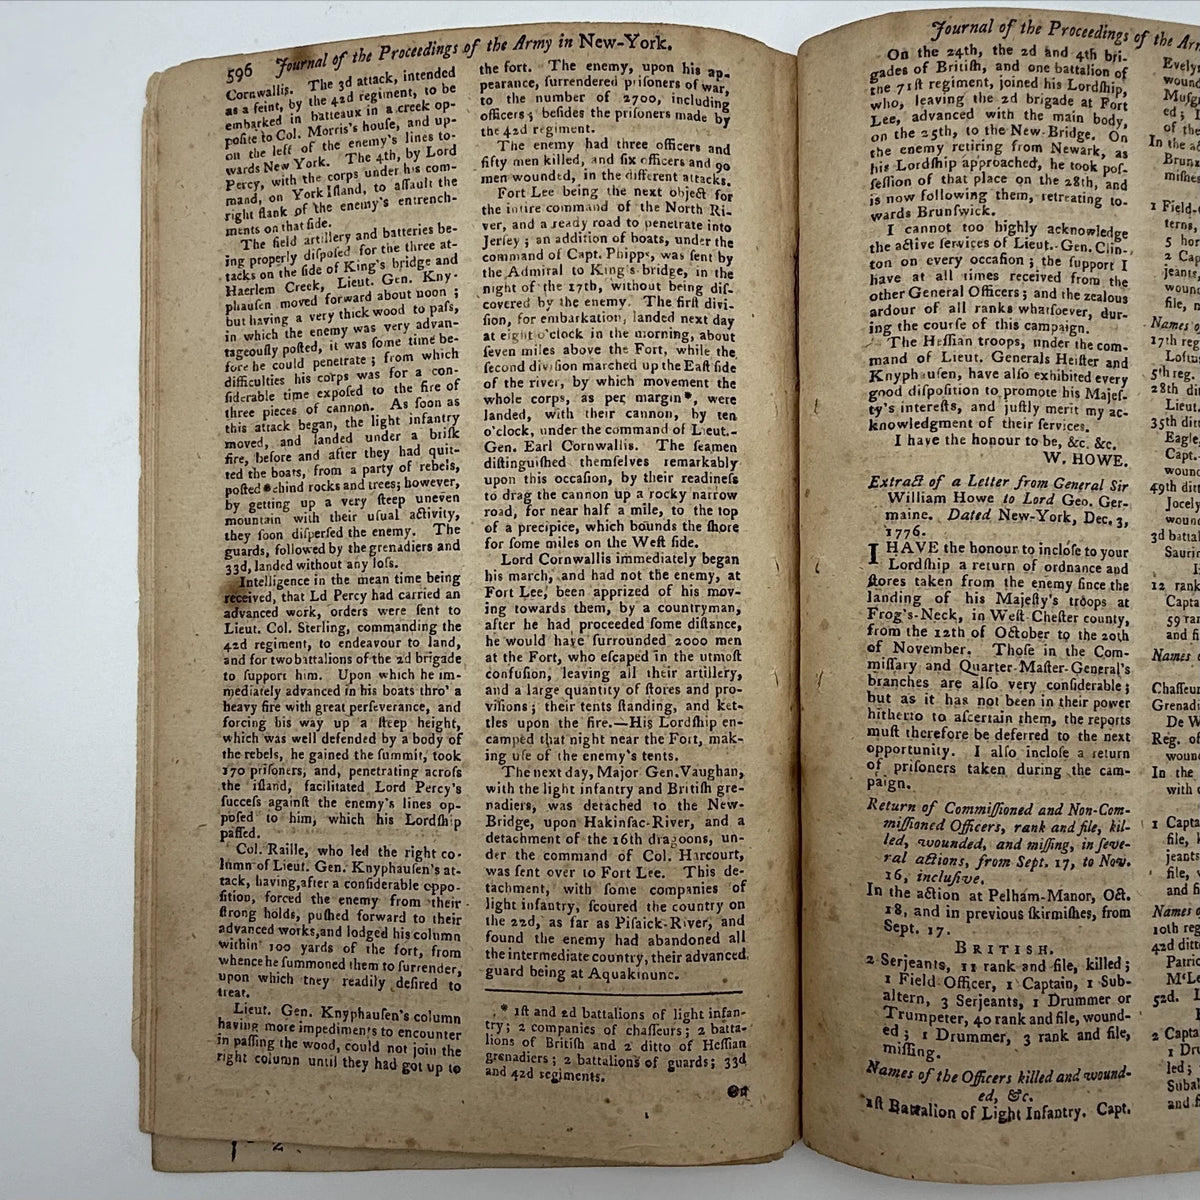 596 Journal of the Proceedings of the Army in New-York.
Cornwallis. The 3d attack, intended
as a feint, by the 42d regiment, to be
embarked in batteaux in a creek op-
poſite to Col. Morris's houſe, and up-
on the left of the enemy's lines to-
wards New York. The 4th, by Lord
Percy, with the corps under his com-
mand, on York Iſland, to aſſault the
right flank of the enemy's entrench-
ments on that ſide.
The field artillery and batteries be-
ing properly diſpoſed for the three at-
tacks on the ſide of King's bridge and
Haerlem Creek, Lieut. Gen. Kny-
phauſen moved forward about noon;
but having a very thick wood to paſs,
in which the enemy was very advan-
tageouſly poſted, it was ſome time be-
fore he could penetrate; from which
difficulties his corps was for a con-
ſiderable time expoſed to the fire of
three pieces of cannon. As ſoon as
this attack began, the light infantry
moved, and landed under a briſk
fire, before and after they had quit-
ted the boats, from a party of rebels,
poſted behind rocks and trees; however,
by getting up a very ſteep uneven
mountain with their uſual activity,
they ſoon diſperſed the enemy. The
guards, followed by the grenadiers and
33d, landed without any loſs.
Intelligence in the mean time being
received, that Ld Percy had carried an
advanced work, orders were ſent to
Lieut. Col. Sterling, commanding the
42d regiment, to endeavour to land,
and for two battalions of the 2d brigade
to ſupport him. Upon which he im-
mediately advanced in his boats thro' a
heavy fire with great perſeverance, and
forcing his way up a ſteep height,
which was well defended by a body of
the rebels, he gained the ſummit, took
170 priſoners, and, penetrating acroſs
the iſland, facilitated Lord Percy's
ſucceſs againſt the enemy's lines op-
poſed to him, which his Lordſhip
paſſed.
Col. Raille, who led the right co-
lumn of Lieut. Gen. Knyphauſen's at-
tack, having, after a conſiderable oppo-
ſition, forced the enemy from their
ſtrong holds, puſhed forward to their
advanced works, and lodged his column
within 100 yards of the fort, from
whence he ſummoned them to ſurrender,
upon which they readily deſired to
treat.
Lieut. Gen. Knyphauſen's column
having more impediments to encounter
in paſſing the wood, could not join the
right column until they had got up to
the fort. The enemy, upon his ap-
pearance, ſurrendered priſoners of war,
to the number of 2700, including
officers; beſides the priſoners made by
the 42d regiment.
The enemy had three officers and
fifty men killed, and ſix officers and 90
men wounded, in the different attacks.
Fort Lee being the next object for
the intire command of the North Ri-
ver, and a ready road to penetrate into
Jerſey; an addition of boats, under the
command of Capt. Phipps, was ſent by
the Admiral to King's-bridge, in the
night of the 17th, without being diſ-
covered by the enemy. The firſt divi-
ſion, for embarkation, landed next day
at eight o'clock in the morning, about
ſeven miles above the Fort, while the
ſecond diviſion marched up the Eaſt ſide
of the river, by which movement the
whole corps, as per margin*, were
landed, with their cannon, by ten
o'clock, under the command of Lieut.-
Gen. Earl Cornwallis. The ſeamen
diſtinguiſhed themſelves remarkably
upon this occaſion, by their readineſs
to drag the cannon up a rocky narrow
road, for near half a mile, to the top
of a precipice, which bounds the ſhore
for ſome miles on the Weſt ſide.
Lord Cornwallis immediately began
his march, and had not the enemy, at
Fort Lee, been apprized of his mov-
ing towards them, by a countryman,
after he had proceeded ſome diſtance,
he would have ſurrounded 2000 men
at the Fort, who eſcaped in the utmoſt
confuſion, leaving all their artillery,
and a large quantity of ſtores and pro-
viſions; their tents ſtanding, and ket-
tles upon the fire.—His Lordſhip en-
camped that night near the Fort, mak-
ing uſe of the enemy's tents.
The next day, Major Gen. Vaughan,
with the light infantry and Britiſh gre-
nadiers, was detached to the New-
Bridge, upon Hakinſac-River, and a
detachment of the 16th dragoons, un-
der the command of Col. Harcourt,
was ſent over to Fort Lee. This de-
tachment, with ſome companies of
light infantry, ſcoured the country on
the 22d, as far as Piſaick-River, and
found the enemy had abandoned all
the intermediate country, their advanced
guard being at Aquakinunc.
* 1ſt and 2d battalions of light infan-
try; 2 companies of chaſſeurs; 2 batta-
lions of Britiſh and 2 ditto of Heſſian
grenadiers; 2 battalions of guards; 33d
and 42d regiments.
On
Journal of the Proceedings of the Ar
On the 24th, the 2d and 4th bri-
gades of Britiſh, and one battalion of
the 71ſt regiment, joined his Lordſhip,
who, leaving the 2d brigade at Fort
Lee, advanced with the main body,
on the 25th, to the New-Bridge. On
the enemy retiring from Newark, as
his Lordſhip approached, he took poſ-
ſeſſion of that place on the 28th, and
is now following them, retreating to-
wards Brunſwick.
I cannot too highly acknowledge
the active ſervices of Lieut.-Gen. Clin-
ton on every occaſion; the ſupport I
have at all times received from the
other General Officers; and the zealous
ardour of all ranks whatſoever, dur-
ing the courſe of this campaign.
The Heſſian troops, under the com-
mand of Lieut. Generals Heiſter and
Knyphauſen, have alſo exhibited every
good diſpoſition to promote his Majeſ-
ty's intereſts, and juſtly merit my ac-
knowledgment of their ſervices.
I have the honour to be, &c. &c.
W. HOWE.
Extract of a Letter from General Sir
William Howe to Lord Geo. Ger-
maine. Dated New-York, Dec. 3,
1776.
I HAVE the honour to incloſe to your
Lordſhip a return of ordnance and
ſtores taken from the enemy ſince the
landing of his Majeſty's troops at
Frog's-Neck, in Weſt-Cheſter county,
from the 12th of October to the 20th
of November. Thoſe in the Com-
miſſary and Quarter-Maſter-General's
branches are alſo very conſiderable;
but as it has not been in their power
hitherto to aſcertain them, the reports
muſt therefore be deferred to the next
opportunity. I alſo incloſe a return
of priſoners taken during the cam-
paign.
Return of Commiſſioned and Non-Com-
miſſioned Officers, rank and file, kil-
led, wounded, and miſſing, in ſeve-
ral actions, from Sept. 17, to Nov.
16, incluſive.
In the action at Pelham-Manor, Oct.
18, and in previous ſkirmiſhes, from
Sept. 17.
BRITISH.
2 Serjeants, 11 rank and file, killed;
1 Field Officer, 1 Captain, 1 Sub-
altern, 3 Serjeants, 1 Drummer or
Trumpeter, 40 rank and file, wound-
ed; 1 Drummer, 3 rank and file,
miſſing.
Names of the Officers killed and wound-
ed, &c.
1ſt Battalion of Light Infantry. Capt.
Evelyn
wound
Muſg
ed; 1
of the
In the a
Brun
miſſe
1 Field-
terns,
5 hor
2 Cap
jeants,
wound
file, m
Names o
17th reg
Loftu
5th reg.
28th dit
Lieut.
35th dit
Eagle,
Capt.
wound
49th dit
Jocely
wound
3d battal
Saurin
12 rank
Capta
59 ran
and fi
Names o
Chaſſeur
Grenadi
De W
Reg. of
wound
In the
with
1 Capta
file, k
jeants
file, w
and fi
Names o
10th reg
42d ditto
Patric
M'Le
52d. L
2 Capta
1 Dr
led;
Subal
and fi